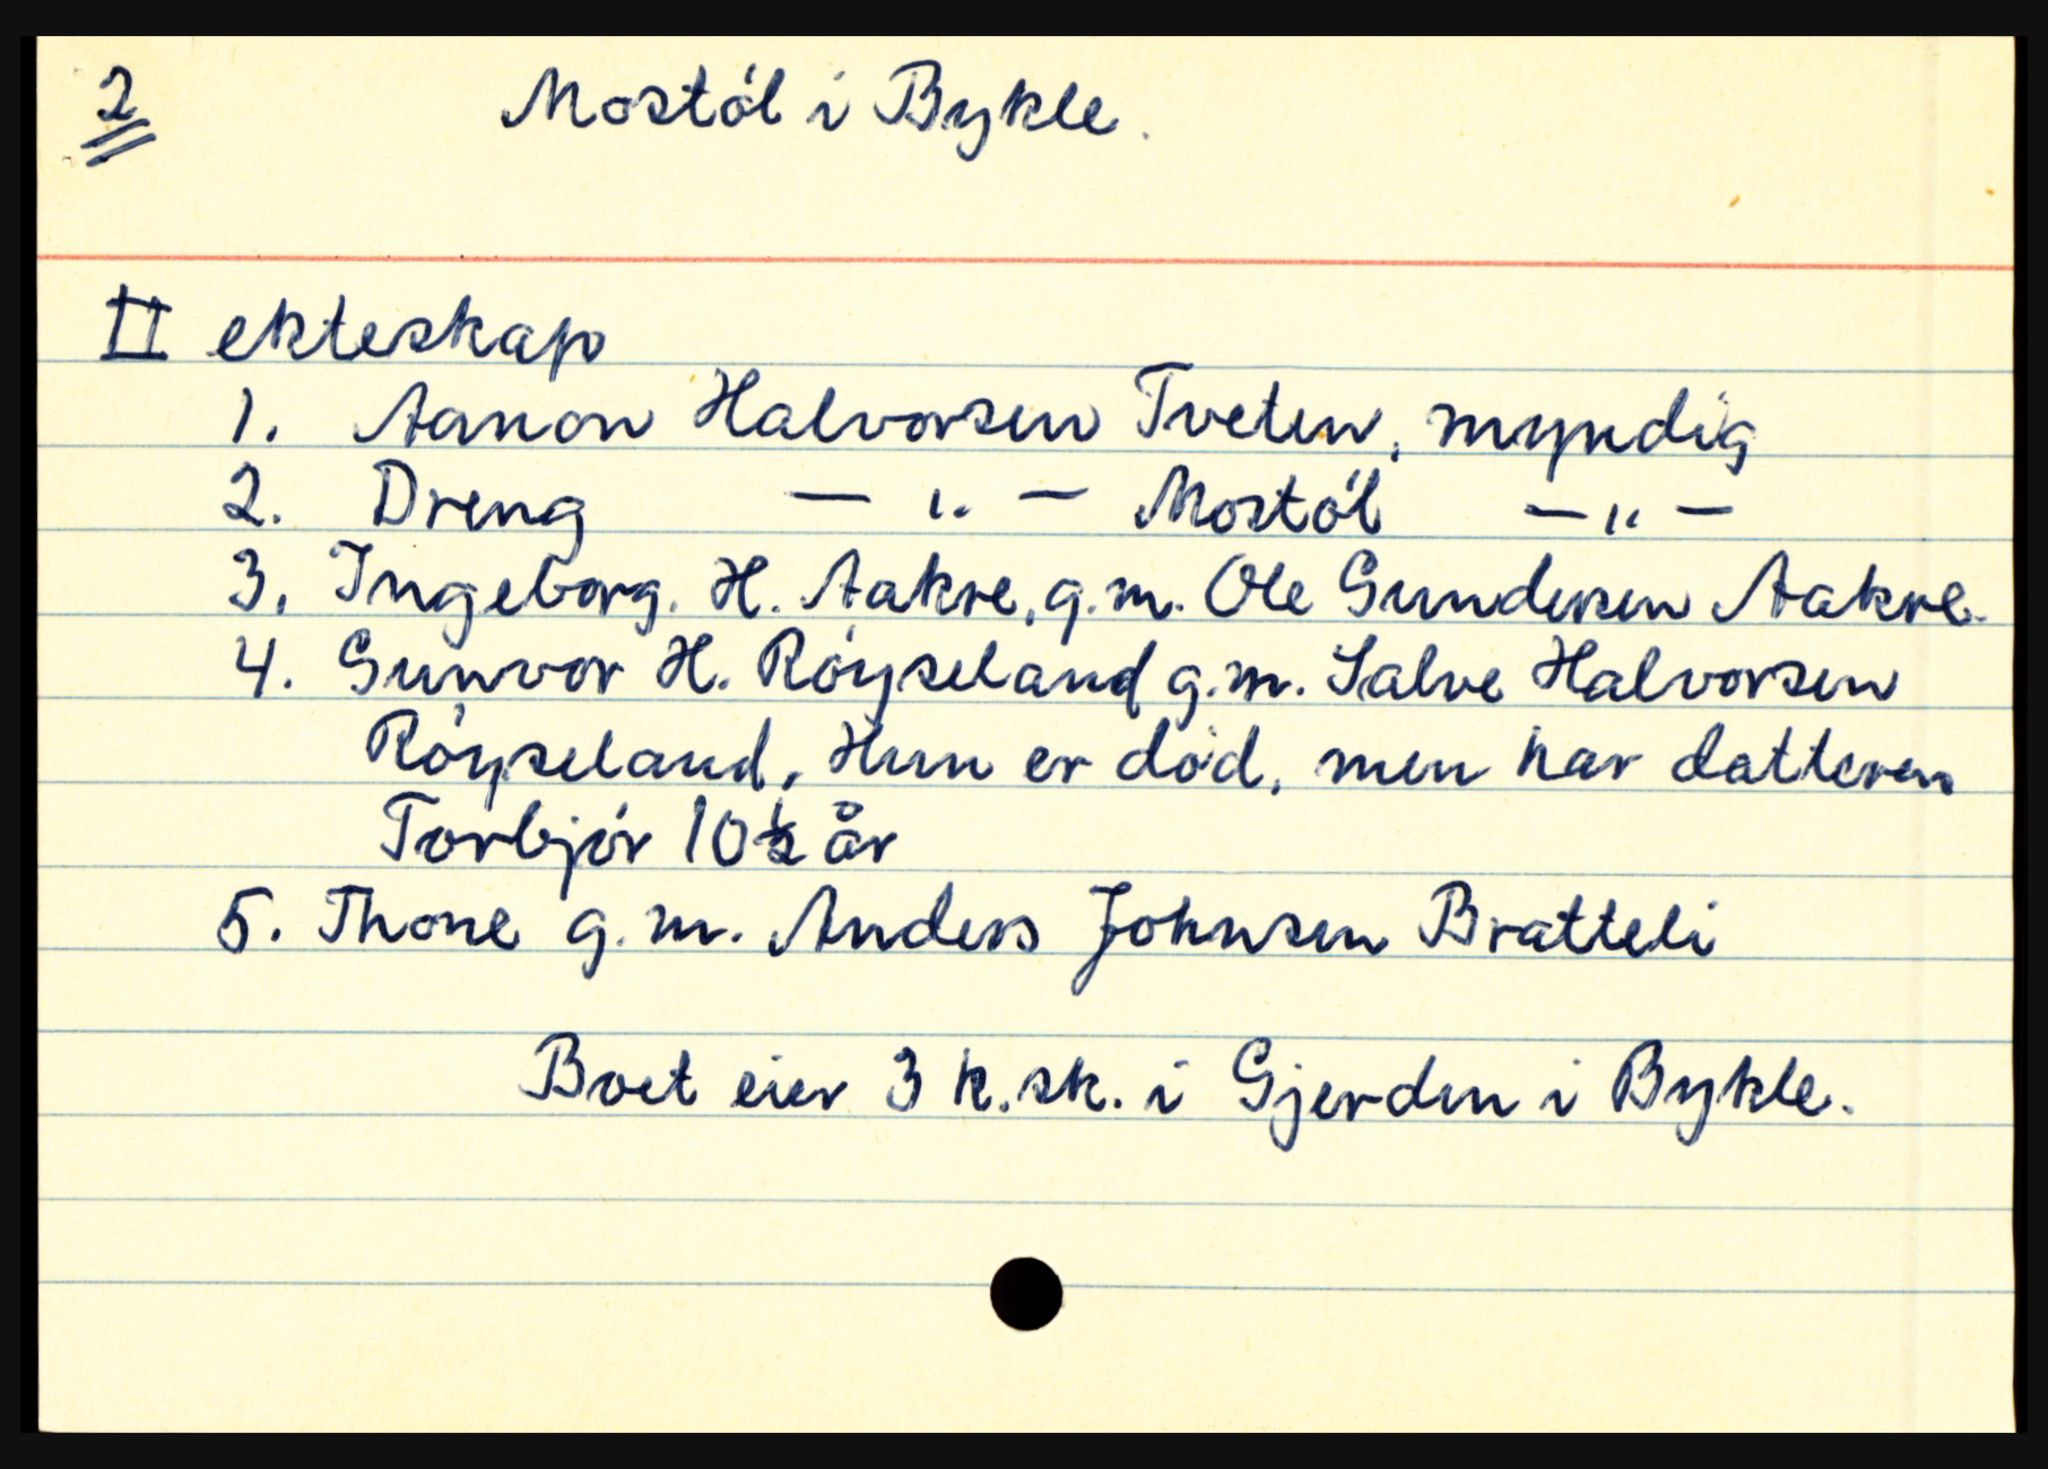 2 Mostól i Bykle.
II ekteskap
1. Aanon Halvorsen Tveten, myndig
2. Dreng — " — Mostól — " —
3. Ingeborg. H. Aakre, g.m. Ole Gundersen Aakre.
4. Gunvor H. Róyseland g.m. Salve Halvorsen
Róyseland. Hun er dód, men har datteren
Torbjór 10 ½ år
5. Thone g.m. Anders Johnsen Bratteli
Boet eier 3 k.sk. i Gjerden i Bykle.